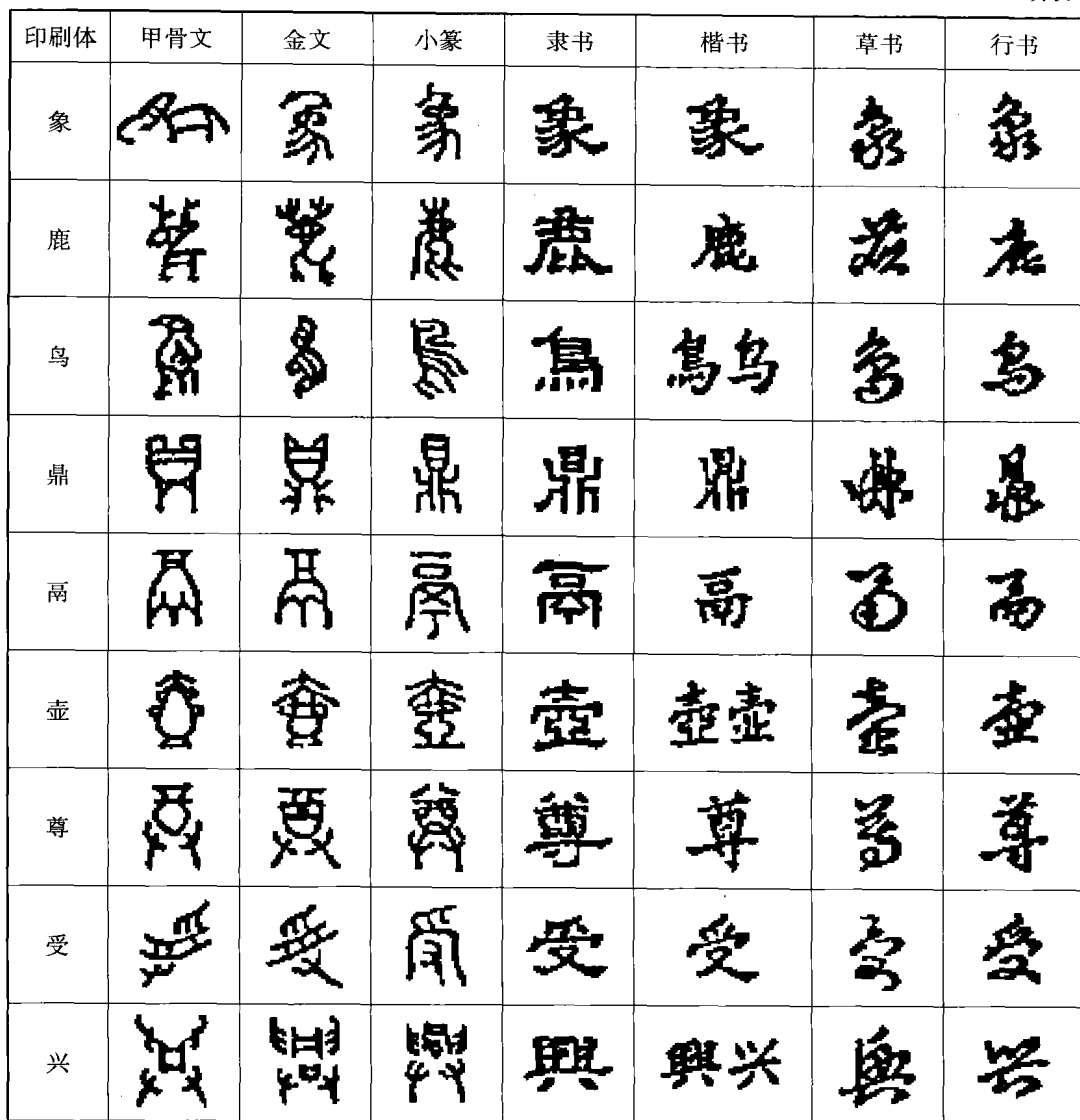 印刷体 甲骨文 金文 小篆 隶书 楷书 草书 行书
象 象 象 象 象 象 象 象
鹿 鹿 鹿 鹿 鹿 鹿 鹿 鹿
鸟 鳥 鳥 鳥 鳥 鳥鸟 鳥 鸟
鼎 鼎 鼎 鼎 鼎 鼎 鼎 鼎
鬲 鬲 鬲 鬲 鬲 鬲 鬲 鬲
壶 壺 壺 壺 壺 壺壶 壺 壶
尊 尊 尊 尊 尊 尊 尊 尊
受 受 受 受 受 受 受 受
兴 興 興 興 興 興兴 興 兴